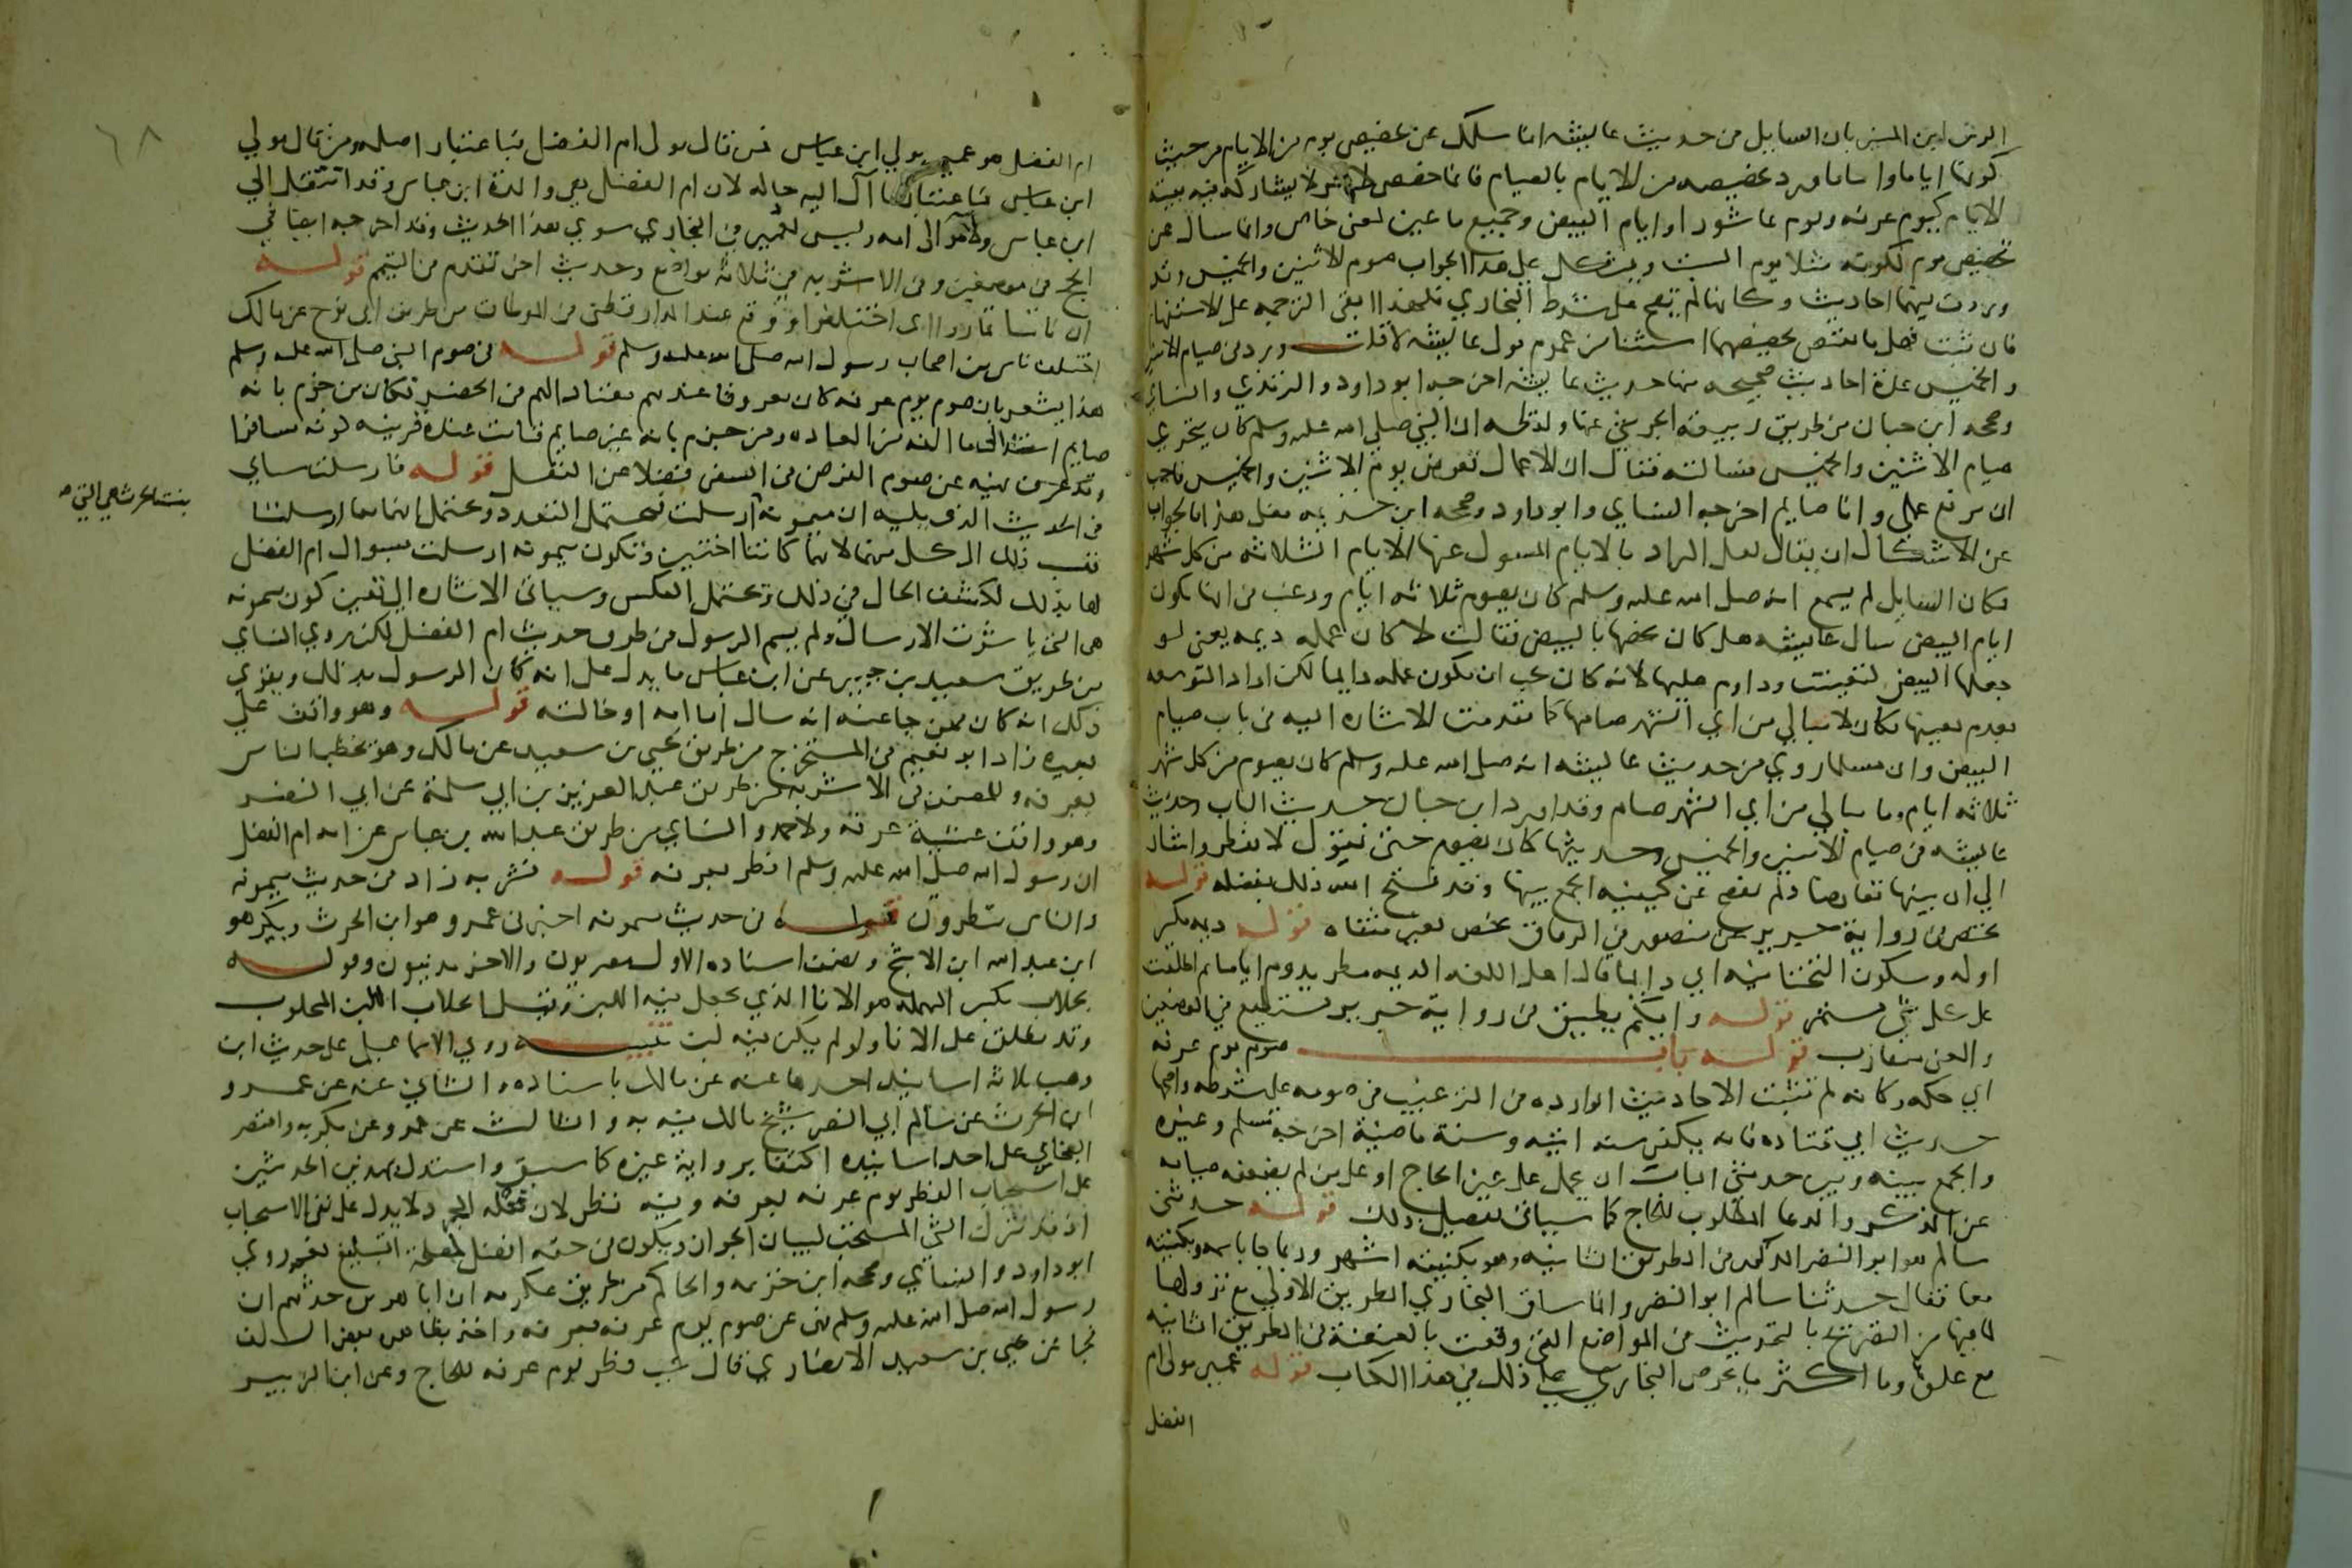 الزين ابن المنير بان السايل من حديث عايشه انما سالك عن تخصيص يوم من الايام من حيث
كونها اياما واما ما ورد تخصيصه من الايام بالصيام فانما خصص لامر لا يشاركه فيه بقية
الايام كيوم عرفه ويوم عاشورا وايام البيض وجميع ما عين لمعنى خاص وانما سال عن
تخصيص يوم لكونه مثلا يوم السبت ويشكل على هذا الجواب صوم الاثنين والخميس وقد
وردت فيهما احاديث وكانها لم تصح على شرط البخاري فلهذا ابقى الترجمه على الاستفهام
فان ثبت فيهما ما يقتضي تخصيصهما استثنا من عموم قول عايشه لا قلت ورد في صيام الاثنين
والخميس عدة احاديث صحيحه منها حديث عايشه اخرجه ابو داود والترمذي والنساي
وصححه ابن حبان من طريق ربيعة الجرشي عنها ولفظه ان النبي صلى الله عليه وسلم كان يتحرى
صيام الاثنين والخميس فسالته فقال ان الاعمال تعرض يوم الاثنين والخميس فاحب
ان يرفع عملي وانا صايم اخرجه النساي وابو داود وصححه ابن خزيمه فعلى هذا فالجواب
عن الاشكال ان يقال لعل المراد بالايام المسول عنها الايام الثلاثه من كل شهر
فكان السايل لما سمع انه صلى الله عليه وسلم كان يصوم ثلاثه ايام ورغب في انها تكون
ايام البيض سال عايشه هل كان يخصها بالبيض فقالت لا كان عمله ديمه يعني لو
جعلها البيض لتعينت وداوم عليها لانه كان يحب ان يكون عمله دايما لكن اراد التوسعه
بعدم تعيينها فكان لا يبالي من اي الشهر صامها كما تقدمت الاشاره اليه في باب صيام
البيض وان مسلما روى من حديث عايشه انه صلى الله عليه وسلم كان يصوم من كل شهر
ثلاثه ايام وما يبالي من اي الشهر صام وقد اورد ابن حبان حديث الباب وحديث
عايشه في صيام الاثنين والخميس وحديثها كان يصوم حتى نقول لا يفطر واشار
الى ان بينها تعارضا ولم يفصح عن كيفيه الجمع بينها وقد فتح الله ذلك بفضله قوله
يختص في رواية جرير عن منصور في الرقاق يخص بغير مثناه قوله ديمه بكسر
اوله وسكون التحتانيه اي دايما قال اهل اللغه الديمه مطر يدوم اياما ثم اطلقت
على كل شي مستمر قوله وايكم يطيق في رواية جرير يستطيع في الموضعين
والمعنى متقارب قوله باب صوم يوم عرفه
اي حكمه وكانه لم تثبت الاحاديث الوارده في الترغيب في صومه على شرطه واصحها
حديث ابي قتاده فانه يكفر سنه اتيه وسنة ماضيه اخرجه مسلم وغيره
والجمع بينه وبين حديثي الباب ان يحمل على غير الحاج او على من لم يضعفه صيامه
عن الذكر والدعا المطلوب للحاج كما سياتي تفصيل ذلك قوله حدثني
سالم هو ابو النضر المذكور في الطريق الثانيه وهو بكنيته اشهر وربما جا باسمه وكنيته
معا فقال حدثنا سالم ابو النضر وانما ساق البخاري الطريق الاولى مع نزولها
لما فيها من التصريح بالتحديث في المواضع التي وقعت بالعنعنة في الطريق الثانيه
مع علوها وما اكثر ما يحرص البخاري على ذلك في هذا الكتاب قوله عمير مولى ام
الفضل
٦٨
ام الفضل هو عمير مولى ابن عباس فمن قال مولى ام الفضل فباعتبار اصله ومن قال مولى
ابن عباس فباعتبار ما آل اليه حاله لان ام الفضل هي والدة ابن عباس وقد انتقل الى
ابن عباس ولاء موالى امه وليس لعمير في البخاري سوى هذا الحديث وقد اخرجه ايضا في
الحج في موضعين وفي الاشربه في ثلاثة مواضع وحديث اخر تقدم في التيمم قوله
ان ناسا تماروا اي اختلفوا ووقع عند الدارقطني في الموطات من طريق ابي نوح عن مالك
اختلف ناس من اصحاب رسول الله صلى الله عليه وسلم قوله في صوم النبي صلى الله عليه وسلم
هذا يشعر بان صوم يوم عرفه كان معروفا عندهم معتادا لهم في الحضر فكان من جزم بانه
صايم استند الى ما الفه من العاده ومن جزم بانه غير صايم قامت عنده قرينه كونه مسافرا
وقد عرف نهيه عن صوم الفرض في السفر فضلا عن النفل قوله فارسلت سياتي
في الحديث الذي يليه ان ميمونة ارسلت فيحتمل التعدد ويحتمل انهما معا ارسلتا
بنت الحرث هي التي
فنسب ذلك الى كل منهما لانهما كانتا اختين وتكون ميمونه ارسلت بسوال ام الفضل
لها بذلك لكشف الحال في ذلك ويحتمل العكس وسياتي الاشاره الى تعيين كون ميمونه
هي التي باشرت الارسال ولم يسم الرسول في طرق حديث ام الفضل لكن روى النساي
من طريق سعيد بن جبير عن ابن عباس ما يدل على انه كان الرسول بذلك ويقوي
ذلك انه كان ممن جا عنه انه سال اما امه او خالته قوله وهو واقف على
بعيره زاد ابو نعيم في المستخرج من طريق يحيى بن سعيد عن مالك وهو يخطب الناس
بعرفه وللمصنف في الاشربه من طريق عبد العزيز بن ابي سلمة عن ابي النضر
وهو واقف عشية عرفة ولاحمد والنساي من طريق عبد الله بن عباس عن امه ام الفضل
ان رسول الله صلى الله عليه وسلم افطر بعرفه قوله فشربه زاد في حديث ميمونه
والناس ينظرون قوله في حديث ميمونه اخبرني عمرو هو ابن الحرث وبكير هو
ابن عبد الله ابن الاشج ونصف اسناده الاول مصريون والاخر مدنيون وقوله
بحلاب بكسر المهمله هو الانا الذي يجعل فيه اللبن وقيل الحلاب اللبن المحلوب
وقد يطلق على الانا ولو لم يكن فيه لبن تنبيه روى الاسماعيلي حديث ابن
وهب بثلاثة اسانيد احدها عنه عن مالك باسناده والثاني عنه عن عمرو
ابن الحرث عن سالم ابي النضر شيخ مالك فيه به والثالث عن عمرو عن بكير به واقتصر
البخاري على احد اسانيده اكتفا برواية غيره كما سبق واستدل بهذين الحديثين
على استحباب الفطر يوم عرفه بعرفه وفيه نظر لان فعله المجرد لا يدل على نفي الاستحباب
اذ قد يترك الشي المستحب لبيان الجواز ويكون في حقه افضل لمصلحة التبليغ نعم روى
ابو داود والنساي وصححه ابن خزيمه والحاكم من طريق عكرمه ان ابا هريره حدثهم ان
رسول الله صلى الله عليه وسلم نهى عن صوم يوم عرفه بعرفه واخذ بظاهره بعض السلف
فجا عن يحيى بن سعيد الانصاري قال يجب فطر يوم عرفه للحاج وعن ابن الزبير